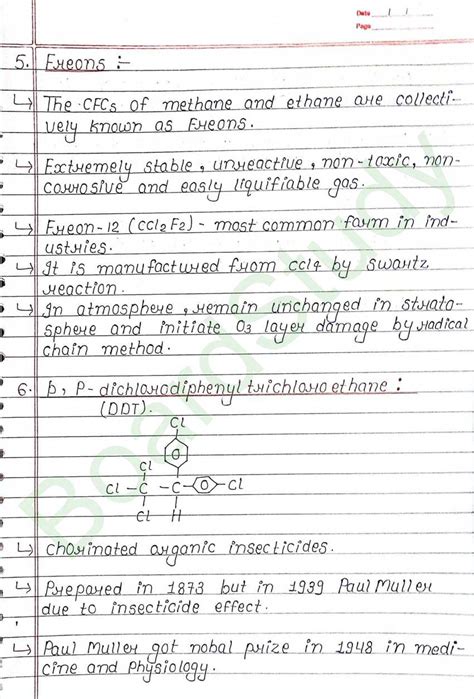 Date / /
Page
5. Freons :-
↳ The CFCs of methane and ethane are collecti-
vely known as Freons.
↳ Extremely stable, unreactive, non-toxic, non-
corrosive and easly liquifiable gas.
↳ Freon-12 (CCl2F2) - most common form in ind-
ustries.
↳ It is manufactured from CCl4 by Swartz
reaction.
↳ In atmosphere, remain unchanged in strato-
sphere and initiate O3 layer damage by radical
chain method.
6. p, P- dichlorodiphenyl trichloro ethane :
(DDT).
Cl
Cl
Cl - C - C - Cl
Cl H
↳ chorinated organic insecticides.
↳ Prepared in 1873 but in 1939 Paul Muller
due to insecticide effect.
↳ Paul Muller got nobal prize in 1948 in medi-
cine and Physiology.
BoardStudy